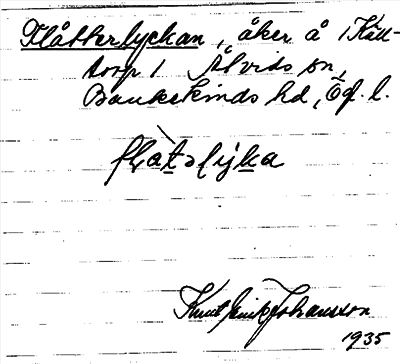 Klåtterlyckan, åker å 1 Käll-
torp 1 Åtvids sn,
Bankekinds hd, Ög. l.
Knut Erik Johansson
1935